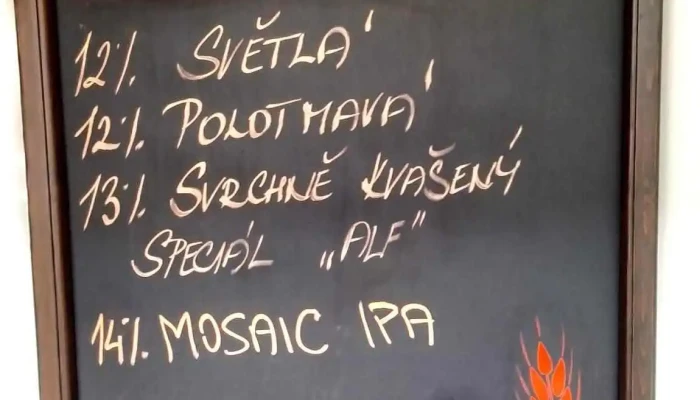 12%. SVĚTLÁ
12%. POLOTMAVÁ
13%. SVRCHNĚ KVAŠENÝ
SPECIÁL „ALF"
14%. MOSAIC IPA